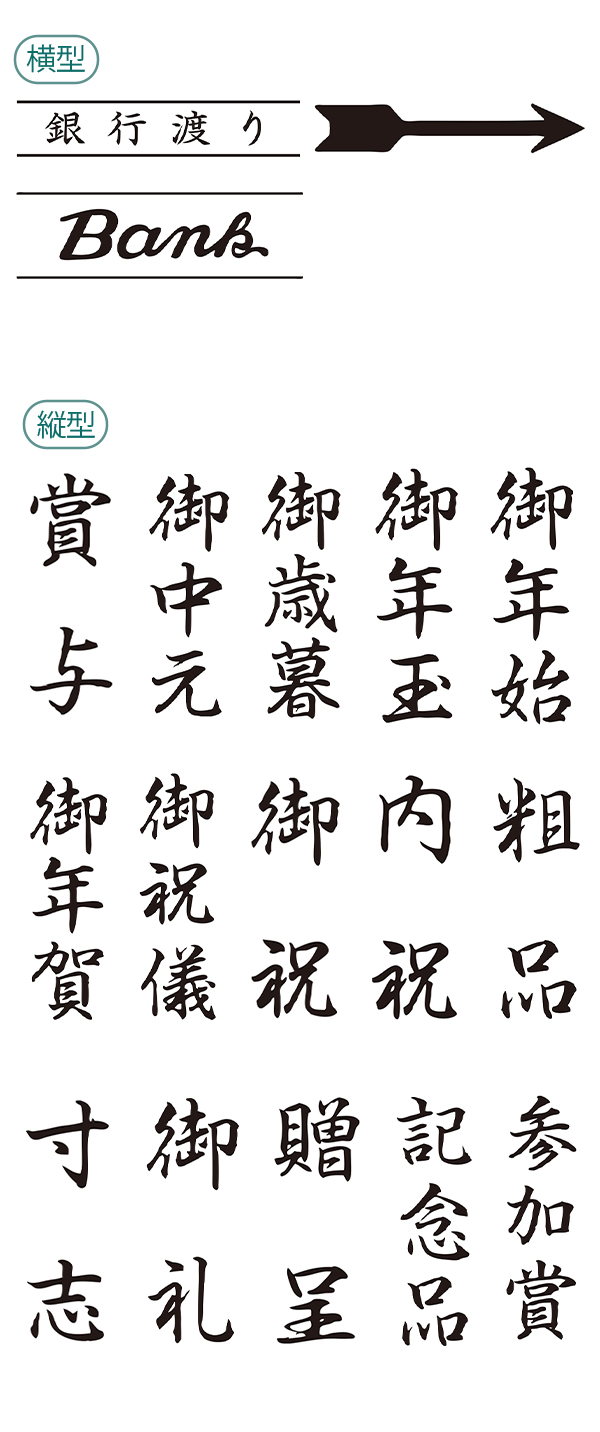 横型
銀行渡り
Bank
縦型
賞与
御中元
御歳暮
御年玉
御年始
御年賀
御祝儀
御祝
内祝
粗品
寸志
御礼
贈呈
記念品
参加賞